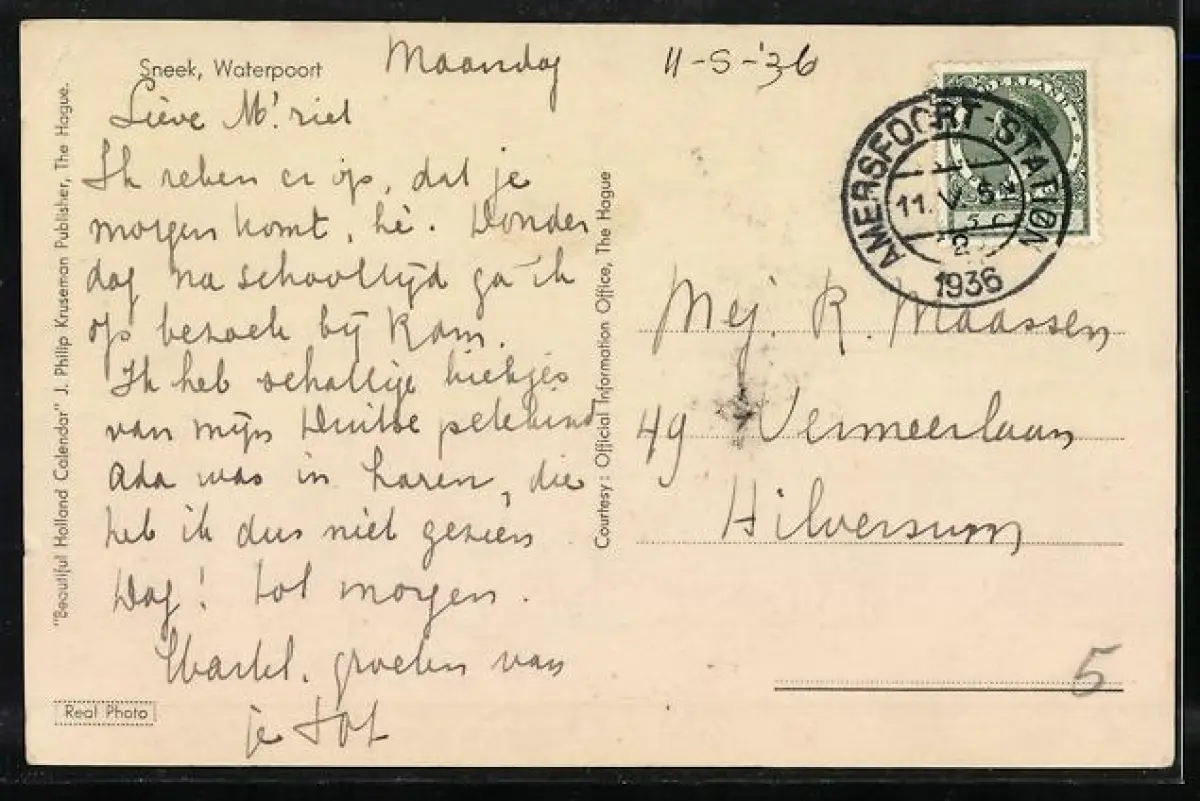 Sneek, Waterpoort
Maandag 11-5-'36
Lieve M'. riet
Ik reken er op, dat je
morgen komt, hè. Donder
dag na schooltijd ga ik
op bezoek bij Ram.
Ik heb schattige kiekjes
van mijn Duitse petekind
Ada was in haren, die
heb ik dus niet gezien
Dag! tot morgen.
Hartel. groeten van
je
"Beautiful Holland Calendar" J. Philip Kruseman Publisher, The Hague.
Real Photo
Courtesy: Official Information Office, The Hague
NEDERLAND
5 C
AMERSFOORT-STATION
11. V. 5N
2
1936
Mej. R. Maassen
49 Vermeerlaan
Hilversum
5